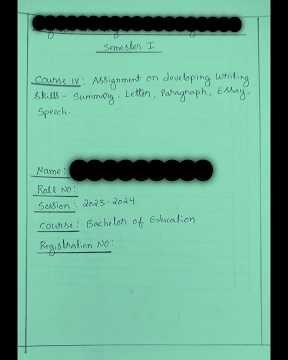 Semester I
Course IV: Assignment on developing Writing
Skills - Summary, Letter, Paragraph, Essay,
Speech.
Name:
Roll No:
Session: 2023-2024
Course: Bachelor of Education
Registration No: